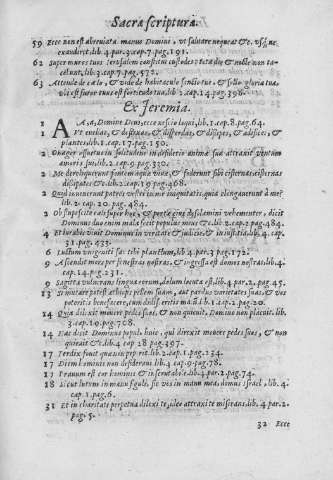 Sacræ scripturæ.
59 Ecce non est abreviata manus Domini, vt salvare nequeat &c.
exaudiat. lib.4.par.3.cap.7.pag.191.
62 Super muros tuos Ierusalem constitui custodes: tota die & nocte non tacebunt, lib.3.cap.7.pag.572.
63 Attende de cælo, & vide de habitaculo sancto tuo, & sollo gloriæ tuæ
vbi est furor tuus est fortitudo tua, lib.3.cap.14.pag.398.
Ex Jeremia.
1 A, a, a, Domine Deus, ecce nescio loqui, lib.1.cap.8.pag.64.
1 Vt euellas, & destruas, & disperdas, & dissipes, & ædifices, &
plantes. lib.1.cap.17.pag.150.
2 Onager assuetus in solitudine in desiderio animæ suæ attraxit ventum
amoris sui, lib.2.cap.9.pag.330.
2 Me dereliquerunt fontem aquæ viuæ, & foderunt sibi cisternas, cisternas
dissipatas &c. lib.2.cap.19.pag.468.
2 Quid inuenerunt patres vestri in me iniquitatis, quia elongauerunt à me?
lib.2.cap.20.pag.484.
2 Obstupescite cæli super hoc, & portæ eius desolamini vehementer, dicit
Dominus: duo enim mala fecit populus meus &c. lib.2.cap.2.pag.484.
4 Et iurabis viuit Dominus in veritate & iudicio, & in iustitia, lib.4.cap.
31.pag.433.
6 Luctum vnigeniti fac tibi planctum, lib.4.par.3.pag.172.
9 Ascendit mors per fenestras nostras, & ingressa est domos nostras. lib.4.
cap.14.pag.231.
9 Sagitta vulnerans lingua eorum, dolum locuta est. lib.4.par.2.pag.45.
13 Si mutare potest æthiops pellem suam, aut pardus varietates suas, & vos
poteritis benefacere, cum didiceritis malū, lib.1.cap.2.pag.20.
14 Quia dilexit mouere pedes suos, & non quieuit, Domino non placuit. lib.
3.cap.19.pag.708.
14 Hæc dicit Dominus populo huic, qui dilexit mouere pedes suos, & non
quieuit & lib.4.cap 28 pag.397.
17 Perdix fouit quæ non peperit. lib.2.cap.1.pag.234.
17 Diem hominis non desideraui. lib.4.cap.9.pag.78.
17 Prauum est cor hominis & inscrutabile. lib.4.par.2.pag.74.
18 Sicut lutum in manu figuli, sic vos in manu mea, domus Israel, lib.4.
cap.1.pag.6.
31 Et in charitate perpetua dilexi te, ideo attraxi te miserans. lib.4.par.2.
pag.5.
32 Ecce